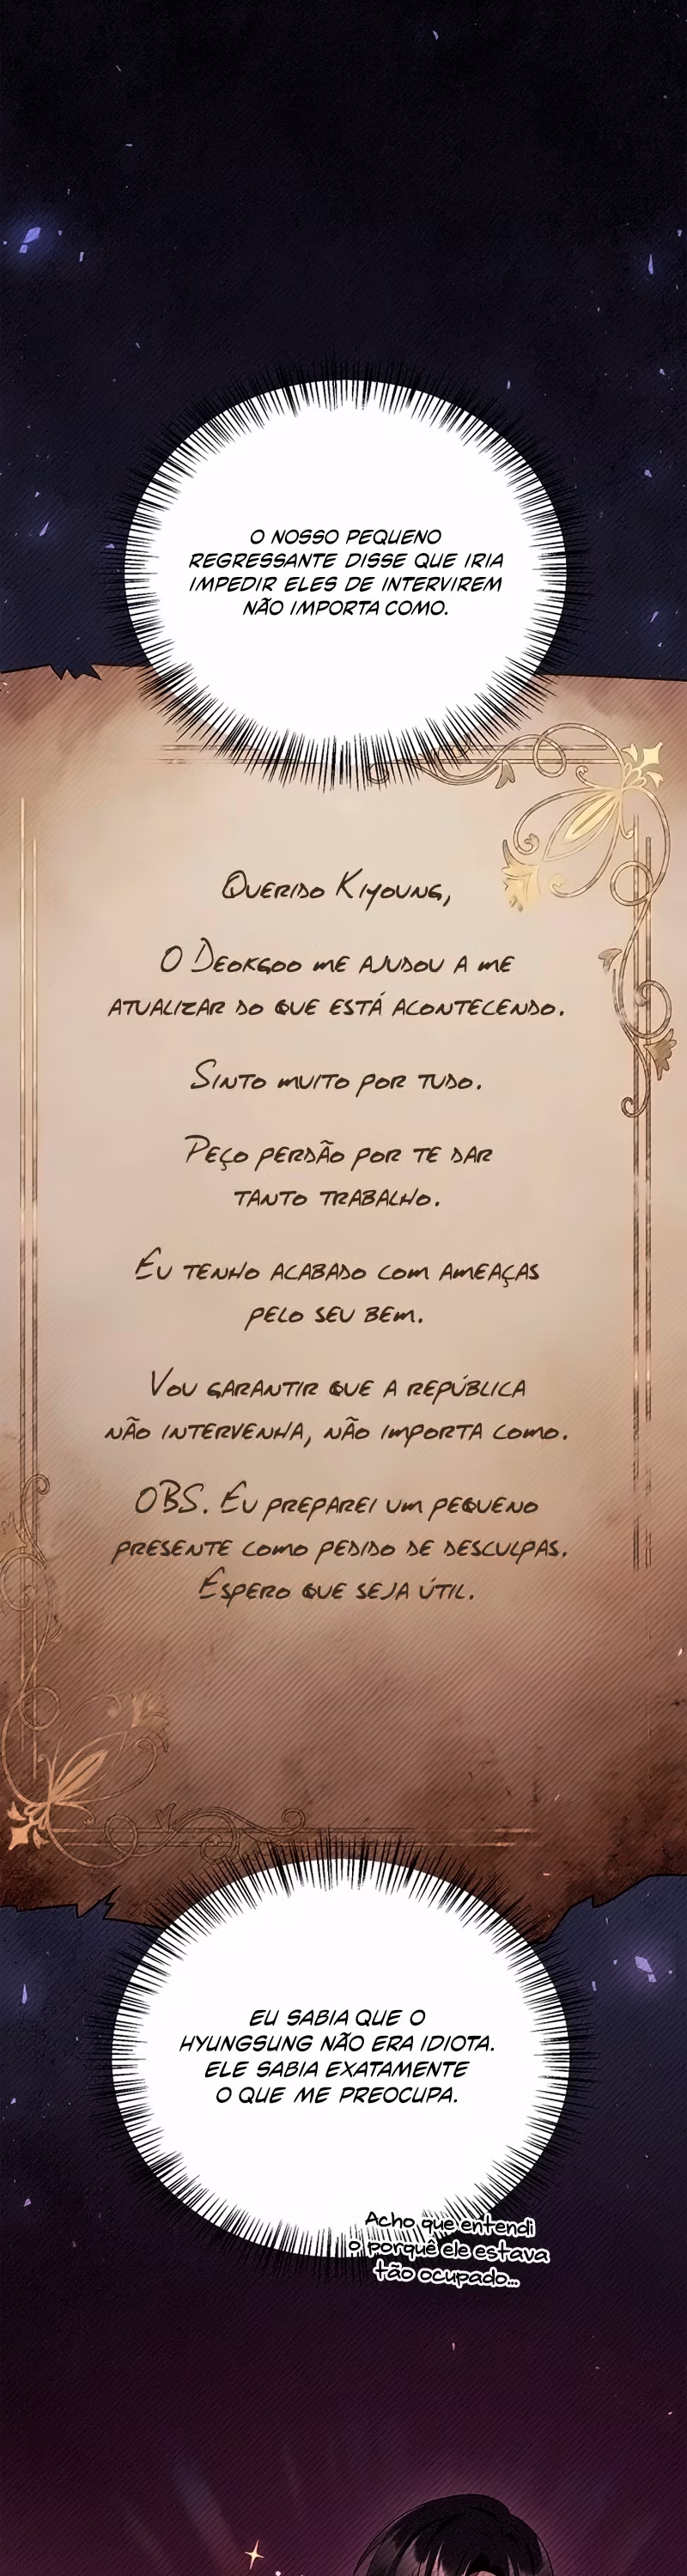 O NOSSO PEQUENO
REGRESSANTE DISSE QUE IRIA
IMPEDIR ELES DE INTERVIREM
NÃO IMPORTA COMO.
QUERIDO KIYOUNG,
O DEOKGOO ME AJUDOU A ME
ATUALIZAR DO QUE ESTÁ ACONTECENDO.
SINTO MUITO POR TUDO.
PEÇO PERDÃO POR TE DAR
TANTO TRABALHO.
EU TENHO ACABADO COM AMEAÇAS
PELO SEU BEM.
VOU GARANTIR QUE A REPÚBLICA
NÃO INTERVENHA, NÃO IMPORTA COMO.
OBS. EU PREPAREI UM PEQUENO
PRESENTE COMO PEDIDO DE DESCULPAS.
ESPERO QUE SEJA ÚTIL.
EU SABIA QUE O
HYUNGSUNG NÃO ERA IDIOTA.
ELE SABIA EXATAMENTE
O QUE ME PREOCUPA.
Acho que entendi
o porquê ele estava
tão ocupado...